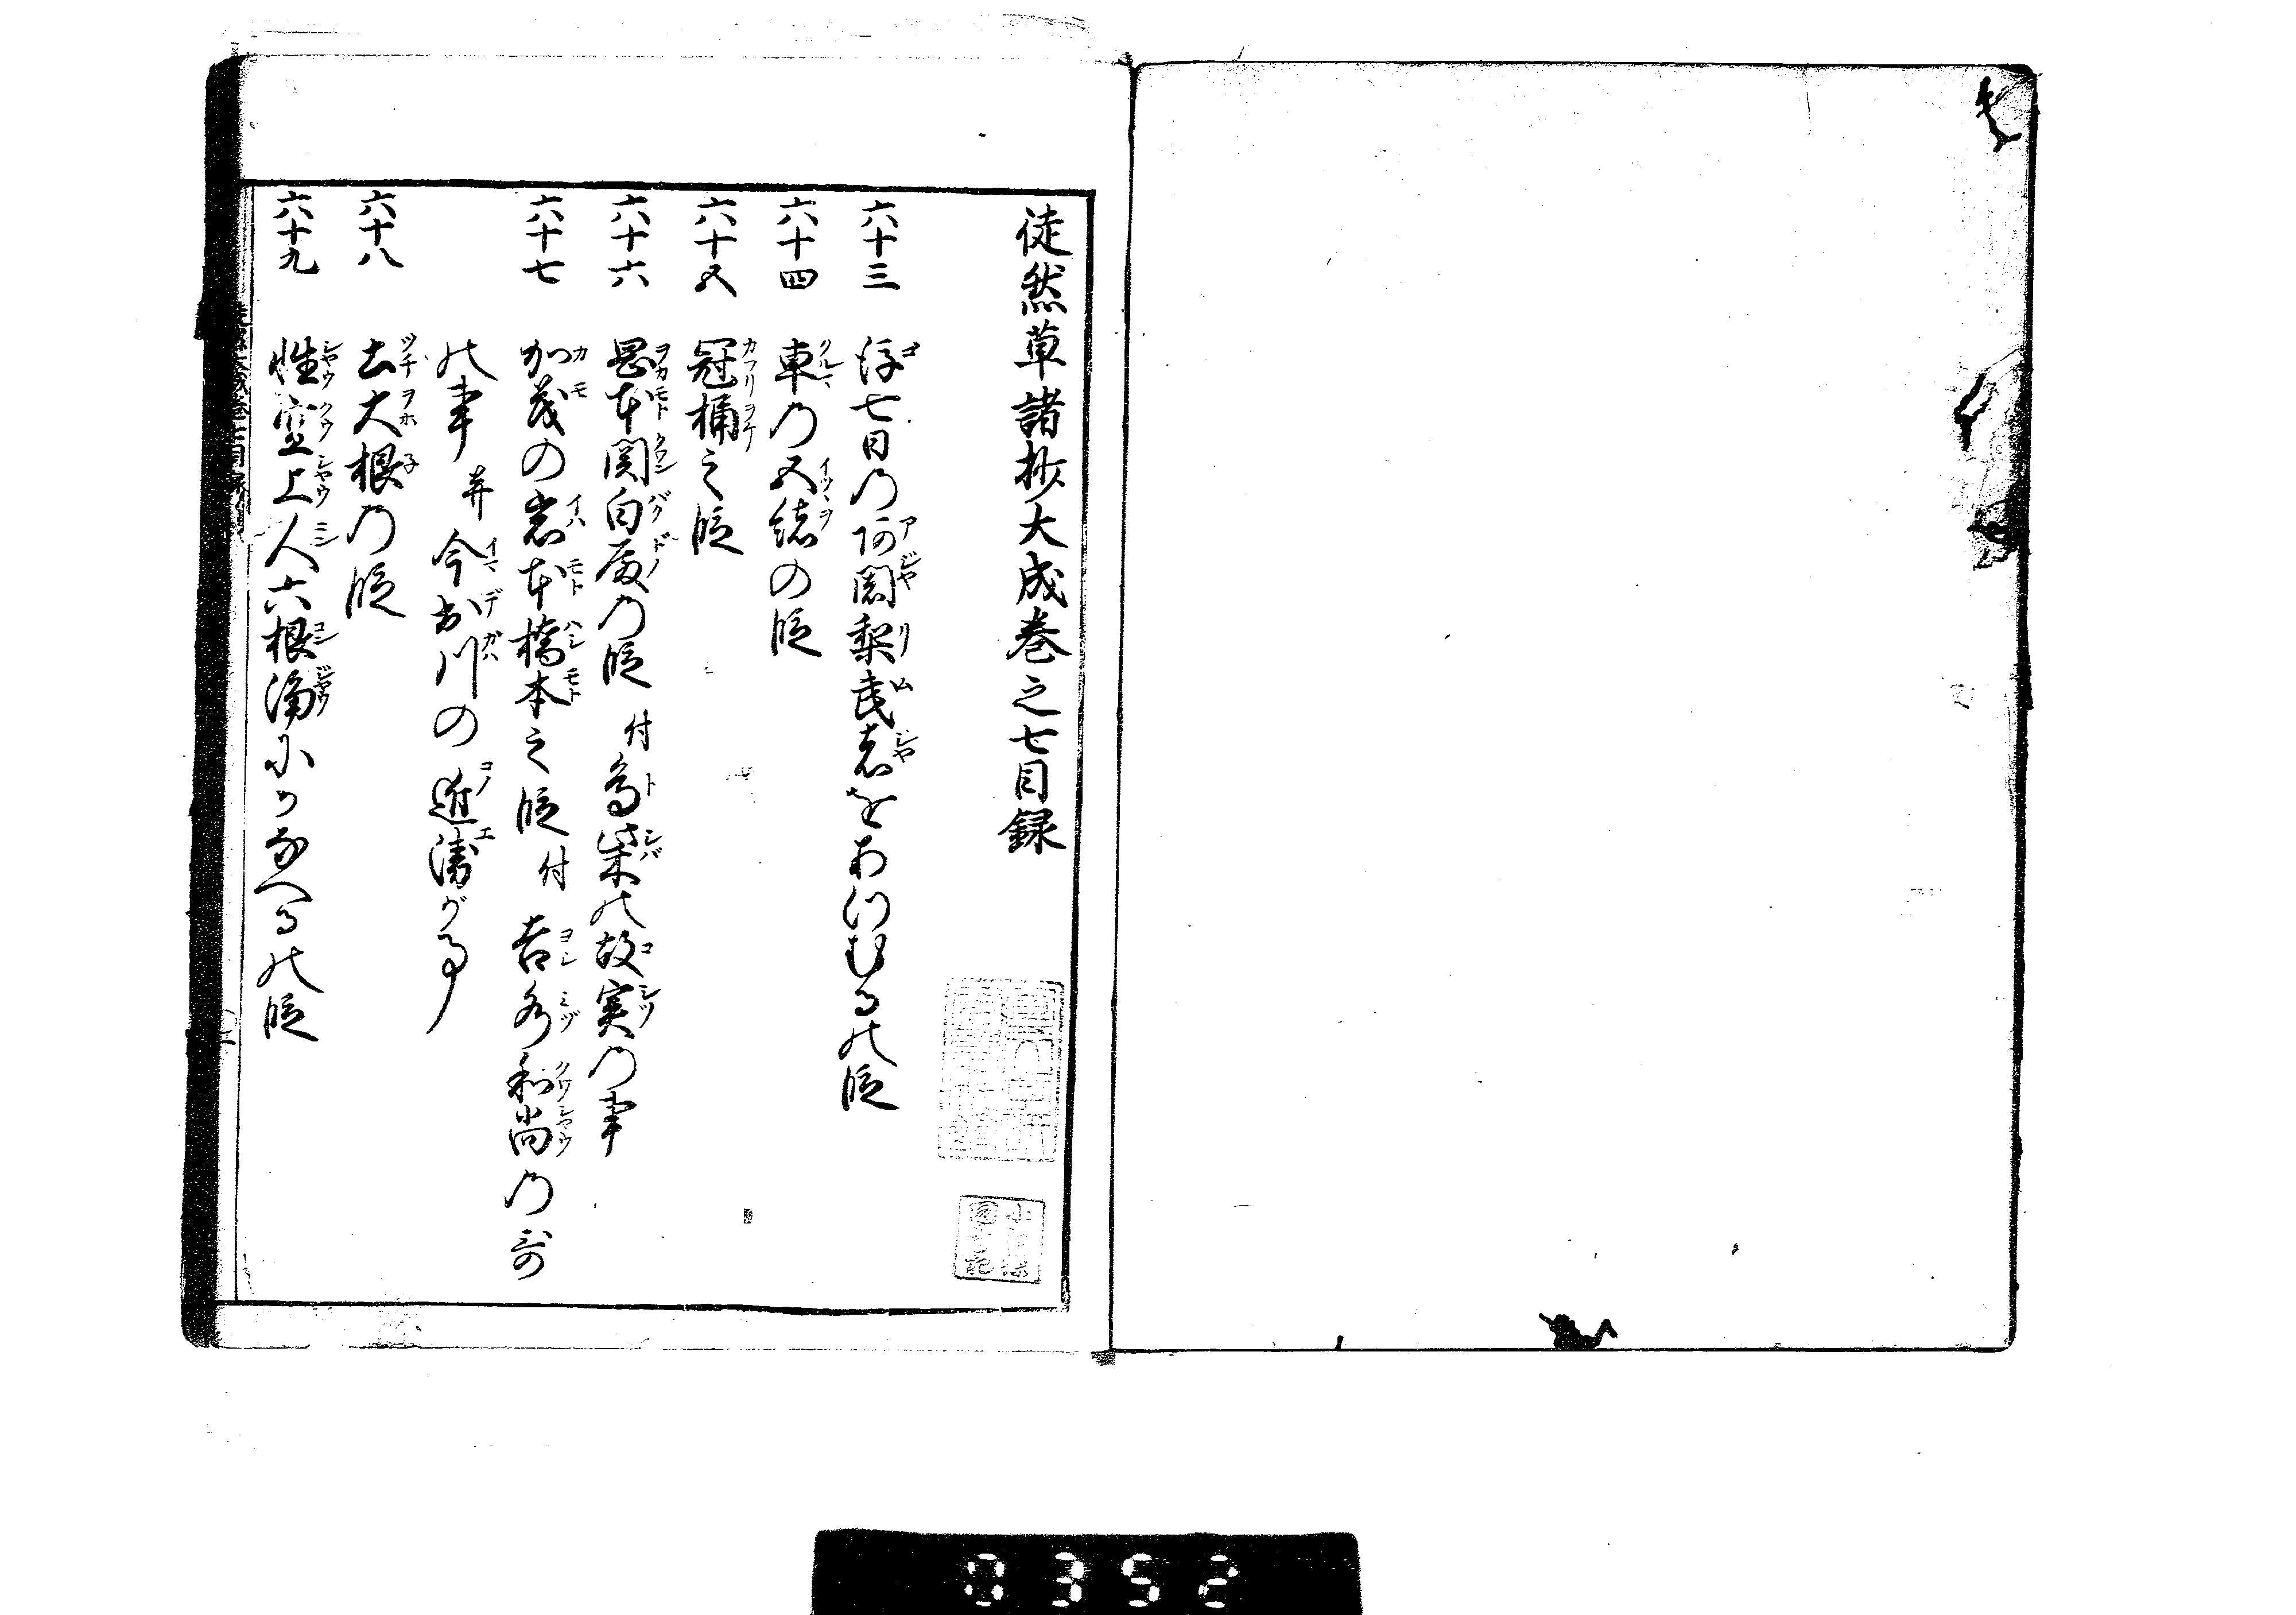 徒然草諸抄大成巻之七目録
六十三 後七日の阿闍梨武者をあつむるの段
六十四 車の五緒の段
六十五 冠桶之段
六十六 岡本関白殿の段 付 鳥柴の故実の事
六十七 加茂の岩本橋本之段 付 吉水和尚の哥
の事 并 今出川の近衛がる事
六十八 土大根の段
六十九 性空上人六根浄にかなへるの段
0352